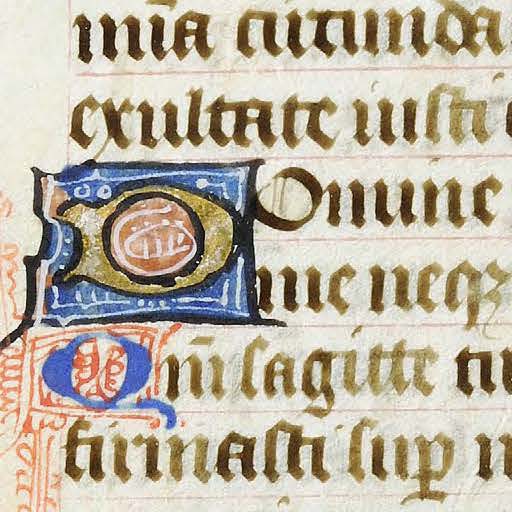 mīa circunda
exultate iusti
Domine
me neqꝫ
Qm̄ sagitte tu
firmasti sup m